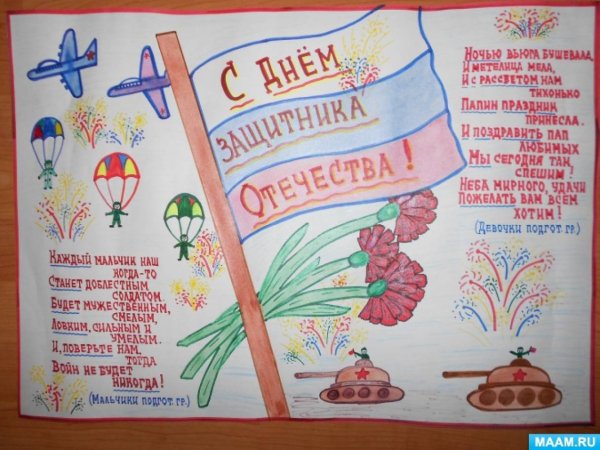 С Днём
защитника
Отечества!
Ночью вьюга бушевала,
И метелица мела,
И с рассветом нам
тихонько
Папин праздник
принесла.
И поздравить пап
любимых
Мы сегодня так
спешим!
Неба мирного, удачи
Пожелать вам всем
хотим!
(Девочки подгот. гр.)
Каждый мальчик наш
когда-то
Станет доблестным
солдатом.
Будет мужественным,
смелым,
Ловким, сильным и
умелым.
И, поверьте нам,
тогда
Войн не будет
никогда!
(Мальчики подгот. гр.)
MAAM.RU